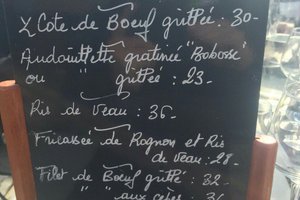 Cote de Boeuf grillée : 30-
Andouillette gratinée "Bobosse"
ou " grillée : 23-
Ris de Veau : 36-
Fricassée de Rognon et Ris
de veau : 28-
Filet de Boeuf grillé : 32
" " aux cèpes :